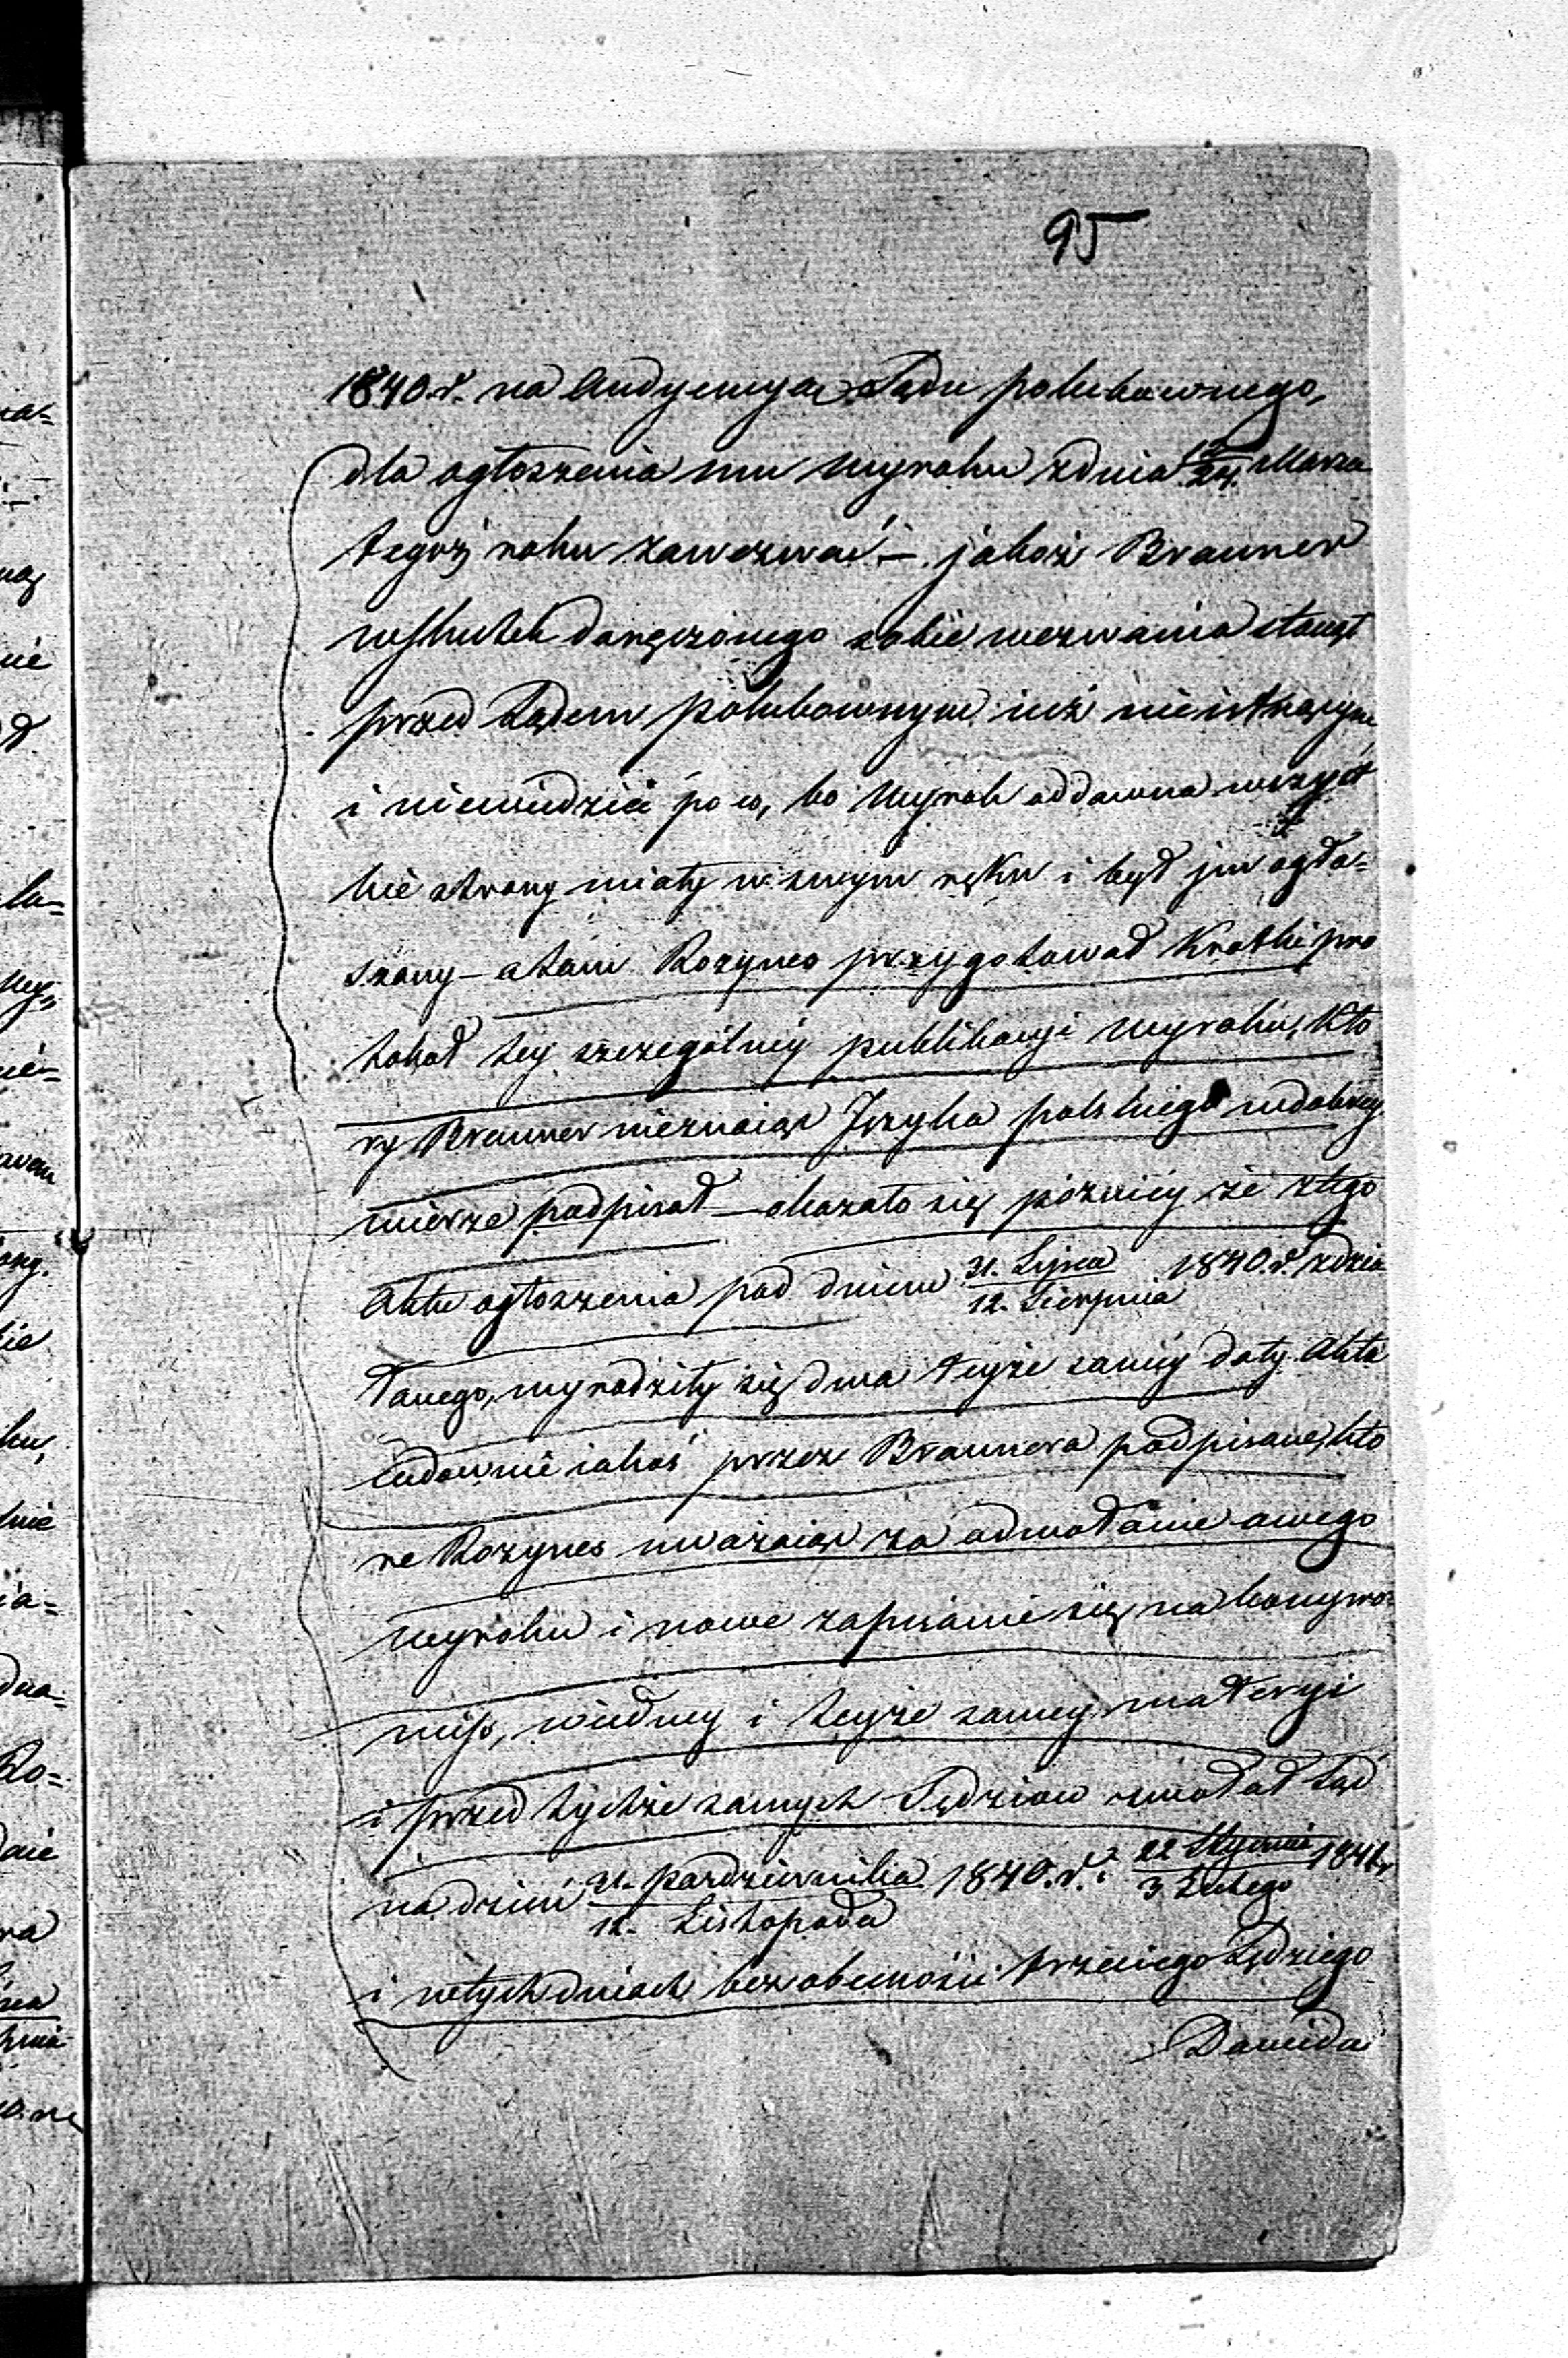 95
1840. r. na Audyencya Sądu polubownego,
dla ogłoszenia mu wyroku zdnia 12/24. Marca
tegoż roku zawezwać –. jakoż Brauner
wskutek doręczonego sobie wezwania stanął
przed Sądem polubownym już nieistnącym
i niewiedzieć po co, bo wyrok oddawna wszyst
kie strony miały w swym ręku i był jm ogła=
szany – a tam Rozynes przygotował Krotki pro
tokoł tey szczególney publikacyi wyroku, Kto
ry Brauner nieznaiąc Języka polskiego wdobrey
wierze podpisał – okazało się pózniey że ztego
Aktu ogłoszenia pod dniem 31. Lipca / 12. Sierpnia 1840. r. zdzia
łanego, wyrodziły się dwa teyże saméy daty Akta
Cudownie iakoś przez Braunera podpisane, kto
re Rozynes uważaiąc za odwołanie owego
wyroku i nowe zapisanie się na kompro=
mis, wiedney i teyże samey materyi
i przed tychże samych Sędziow zwołał Sąd
na dzień 31. pazdziernika / 12. Listopada 1840. r. i 22 Stycznia / 3 Lutego 1841 r
i wtych dniach bez obecności trzeciego Sędziego
Dawida